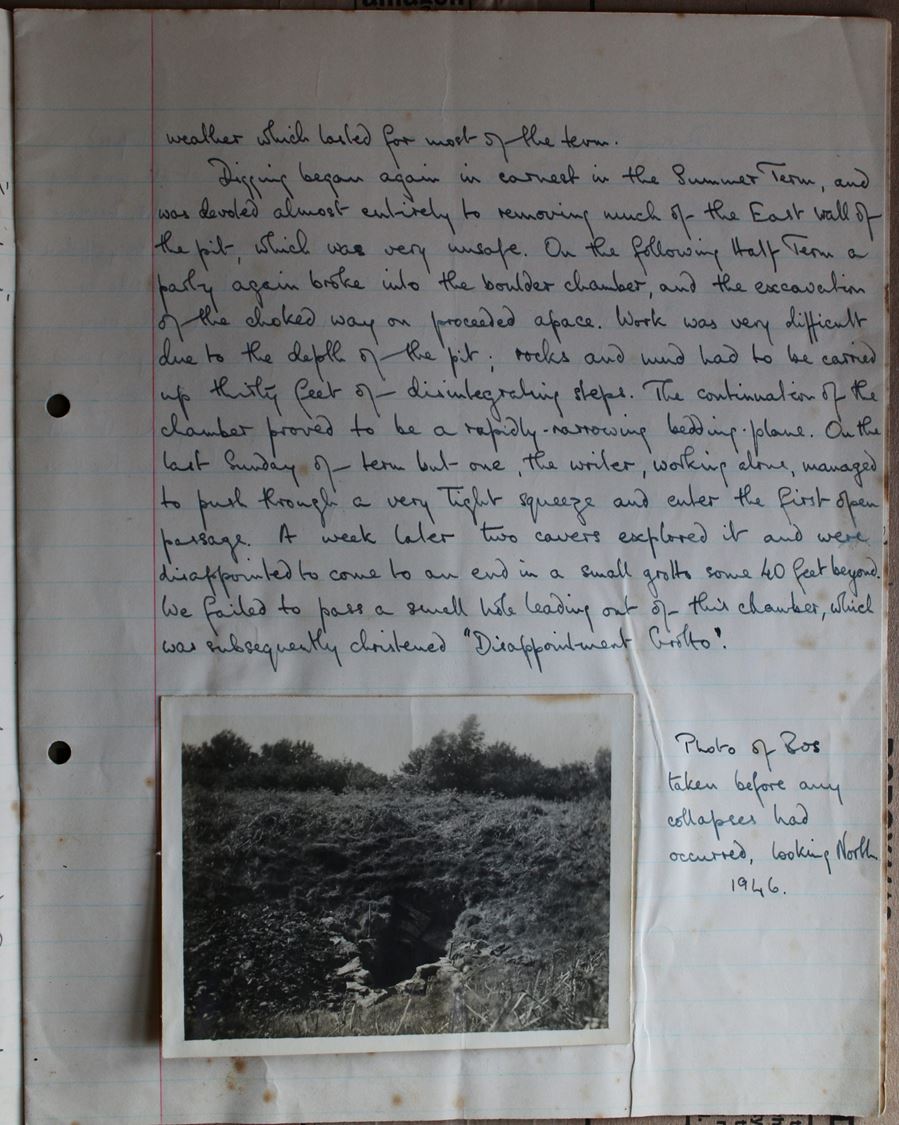 weather which lasted for most of the term.
Digging began again in earnest in the Summer Term, and
was devoted almost entirely to removing much of the East wall of
the pit, which was very unsafe. On the following Half Term a
party again broke into the boulder chamber, and the excavation
of the choked way on proceeded apace. Work was very difficult
due to the depth of the pit; rocks and mud had to be carried
up thirty feet of disintegrating steps. The continuation of the
chamber proved to be a rapidly-narrowing bedding-plane. On the
last Sunday of term but one, the writer, working alone, managed
to push through a very tight squeeze and enter the first open
passage. A week later two cavers explored it and were
disappointed to come to an end in a small grotto some 40 feet beyond.
We failed to pass a small hole leading out of this chamber, which
was subsequently christened "Disappointment Grotto".
Photo of Bos
taken before any
collapses had
occurred, looking North
1946.